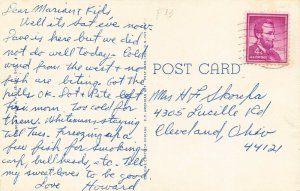 Dear Marian & Kids
Well its sat eve now.
Dave is here but we did
not do well today. Cold
wind from the west & no
fish are biting. Got the
pills OK. Dot & Pete left
this morn Too cold for
them. Whitemans staying
till Tues. Freezing up a
few fish for smoking
carp, bull heads, etc. Tell
my sweet loves to be good.
Love Howard
POST CARD
Mrs H F Skorepa
4305 Lucille Rd
Cleveland, Ohio
44121